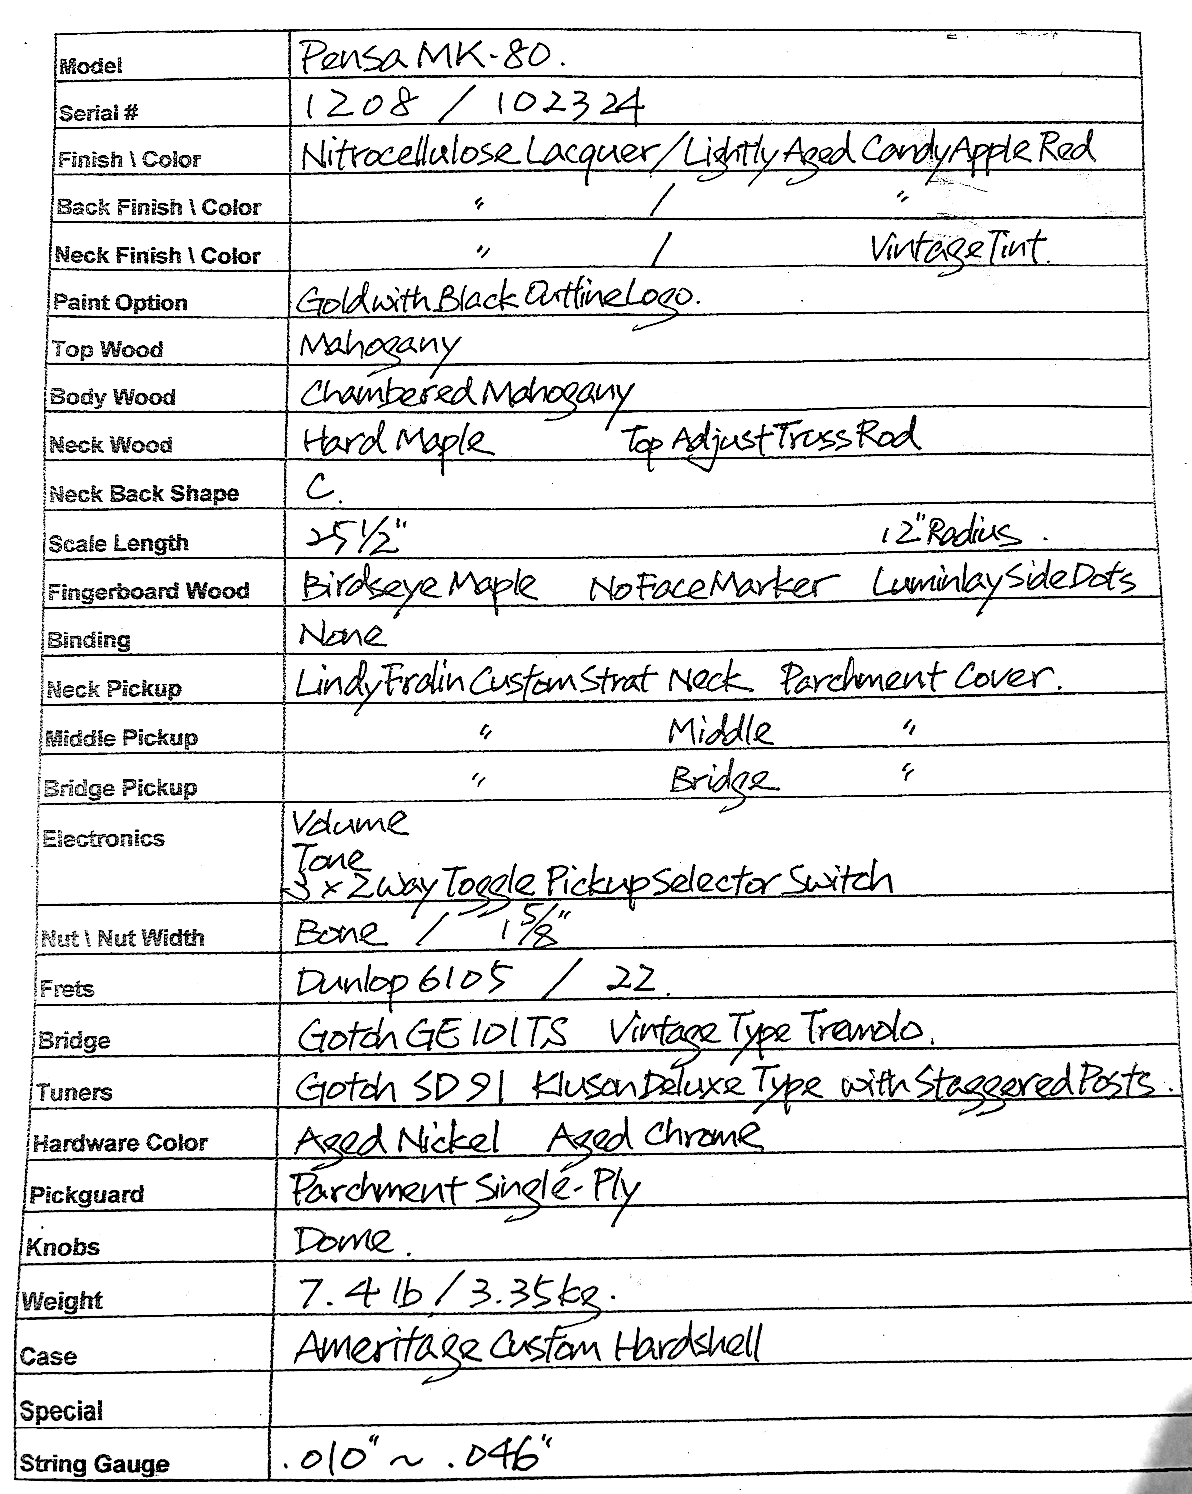 Model Pensa MK-80.
Serial # 1208 / 102324
Finish \ Color Nitrocellulose Lacquer / Lightly Aged Candy Apple Red
Back Finish \ Color " / "
Neck Finish \ Color " / Vintage Tint.
Paint Option Gold with Black Outline Logo.
Top Wood Mahogany
Body Wood Chambered Mahogany
Neck Wood Hard Maple Top Adjust Truss Rod
Neck Back Shape C.
Scale Length 25 1/2" 12" Radius.
Fingerboard Wood Birdseye Maple No Face Marker Luminlay Side Dots
Binding None
Neck Pickup Lindy Fralin Custom Strat Neck Parchment Cover.
Middle Pickup " Middle "
Bridge Pickup " Bridge "
Electronics Volume
Tone
3 x 2 Way Toggle Pickup Selector Switch
Nut \ Nut Width Bone / 1 5/8"
Frets Dunlop 6105 / 22.
Bridge Gotoh GE101TS Vintage Type Tremolo.
Tuners Gotoh SD91 Kluson Deluxe Type with Staggered Posts.
Hardware Color Aged Nickel Aged Chrome
Pickguard Parchment Single-Ply
Knobs Dome.
Weight 7.4 lb / 3.35 kg.
Case Ameritage Custom Hardshell
Special
String Gauge .010" ~ .046"